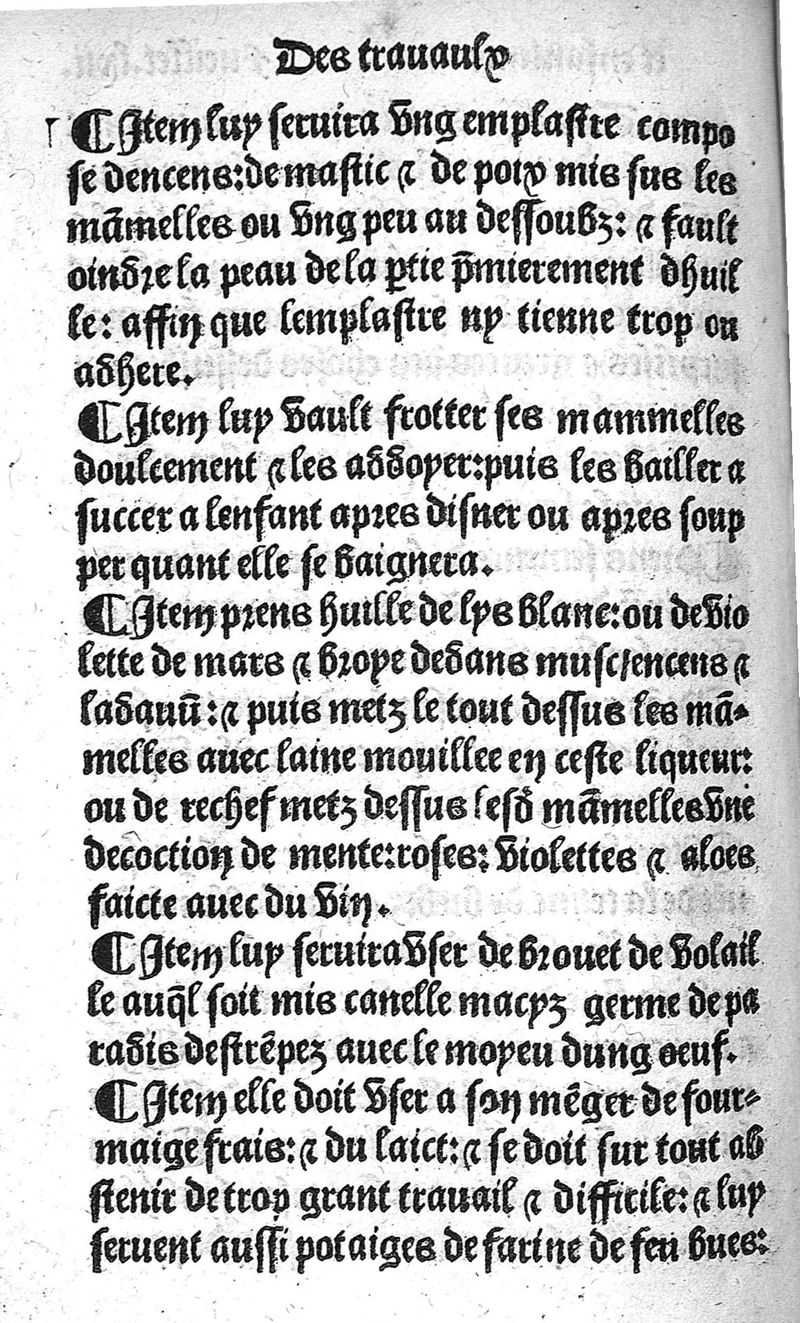 Des trauaulx
¶ Item luy seruira vng emplastre compo
se dencens: de mastic ⁊ de poix mis sus les
mãmelles ou vng peu au dessoubz: ⁊ fault
oindre la peau de la ꝑtie p̃mierement dhuil
le: affin que lemplastre ny tienne trop ou
adhere.
¶ Item luy vault frotter ses mammelles
doulcement ⁊ les addoyer: puis les bailler a
succer a lenfant apres disner ou apres soup
per quant elle se baignera.
¶ Item prens huille de lys blanc: ou de vio
lette de mars ⁊ broye dedans musc/encens ⁊
ladauũ: ⁊ puis metz le tout dessus les mã-
melles auec laine mouillee en ceste liqueur:
ou de rechef metz dessus lesd̃ mãmelles vne
decoction de mente: roses: violettes ⁊ aloes
faicte auec du vin.
¶ Item luy seruira vser de brouet de volail
le auq̃l soit mis canelle macyz germe de pa
radis destrẽpez auec le moyeu dung oeuf.
¶ Item elle doit vser a son mẽger de four-
maige frais: ⁊ du laict: ⁊ se doit sur tout ab
stenir de trop grant trauail ⁊ difficile: ⁊ luy
seruent aussi potaiges de farine de feu bues: